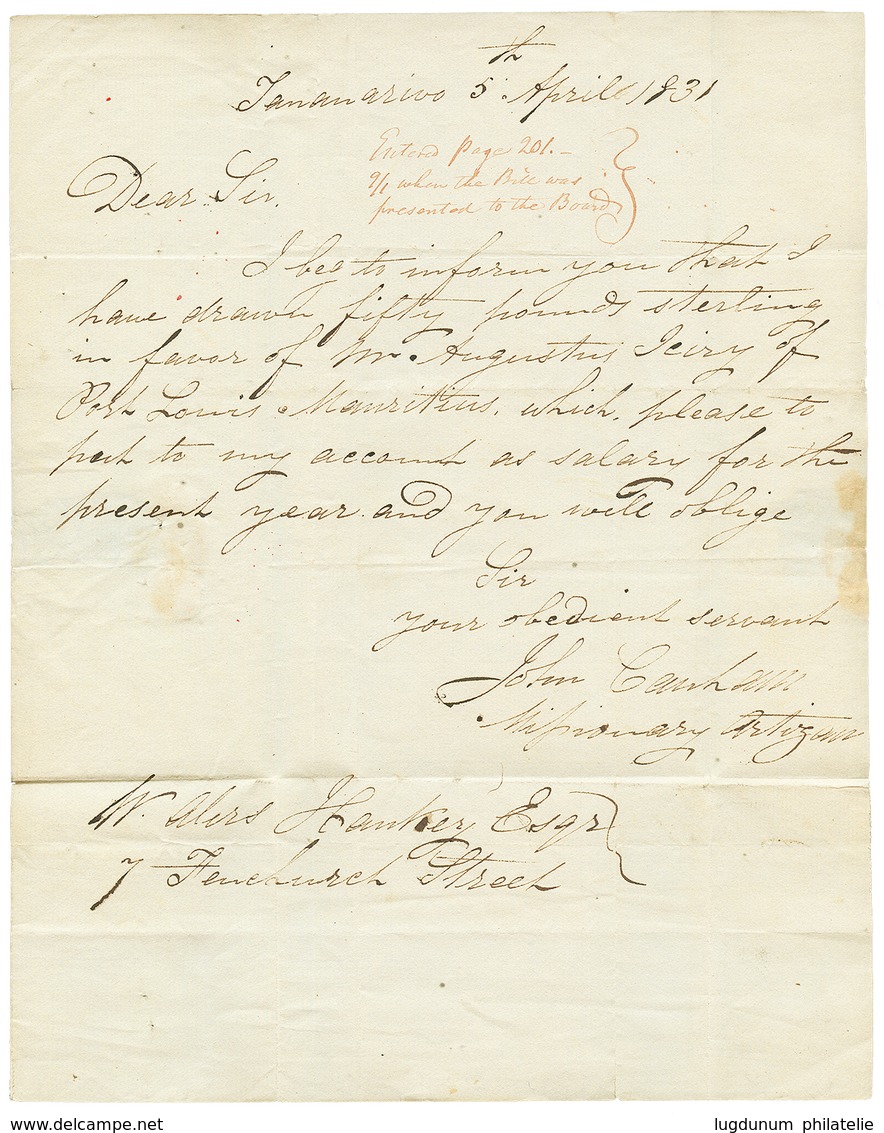 th
Tananarivo 5 April 1831
Entered Page 201.—
when the Bill was
presented to the Board
Dear Sir.
I beg to inform you that I
have drawn fifty pounds sterling
in favor of Mr. Augustus of
Port Louis Mauritius, which, please to
put to my account as salary for the
present year and you will oblige
Sir
your obedient servant
John Canham
Missionary Artizan
W. Alers Hankey Esqr
7 Fenchurch Street
www.delcampe.net
lugdunum philatelie